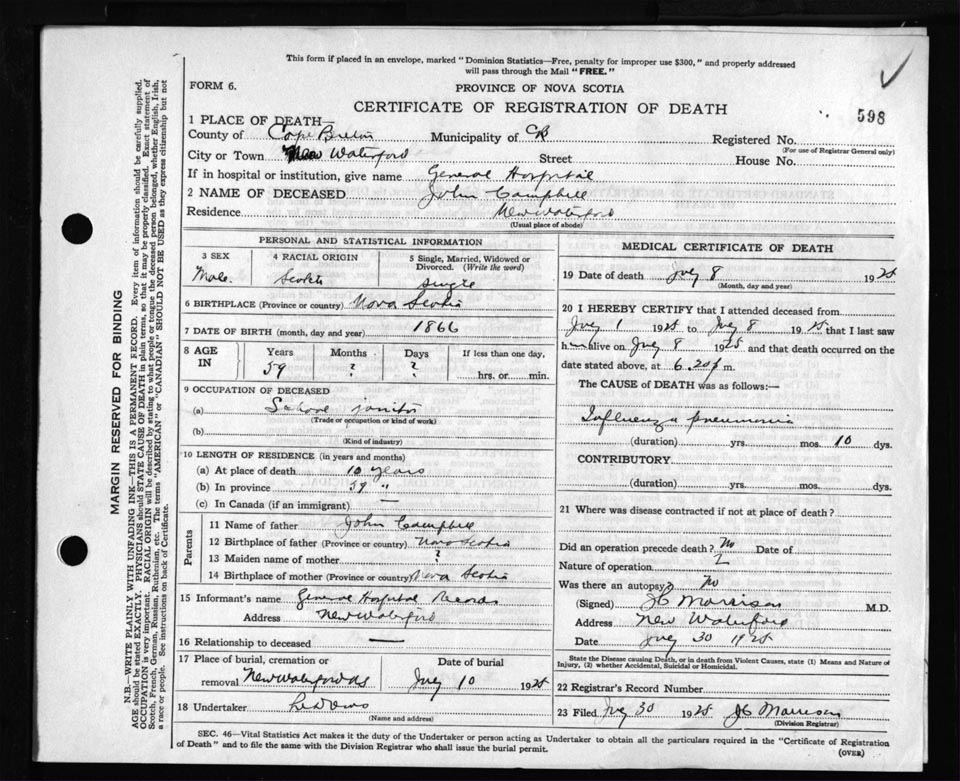 This form if placed in an envelope, marked "Dominion Statistics—Free, penalty for improper use $300," and properly addressed
will pass through the Mail "FREE."
FORM 6.
PROVINCE OF NOVA SCOTIA
CERTIFICATE OF REGISTRATION OF DEATH
598
1 PLACE OF DEATH—
County of Cape Breton Municipality of CB Registered No.
(For use of Registrar General only)
City or Town New Waterford Street House No.
If in hospital or institution, give name General Hospital
2 NAME OF DECEASED John Campbell
Residence New Waterford
(Usual place of abode)
PERSONAL AND STATISTICAL INFORMATION
3 SEX 4 RACIAL ORIGIN 5 Single, Married, Widowed or Divorced. (Write the word)
Male Scotch single
6 BIRTHPLACE (Province or country) Nova Scotia
7 DATE OF BIRTH (month, day and year) 1866
8 AGE IN Years Months Days If less than one day,
59 ? ? hrs. or min.
9 OCCUPATION OF DECEASED
(a) School janitor
(Trade or occupation or kind of work)
(b)
(Kind of industry)
10 LENGTH OF RESIDENCE (in years and months)
(a) At place of death 10 years
(b) In province 59 "
(c) In Canada (if an immigrant) —
Parents
11 Name of father John Campbell
12 Birthplace of father (Province or country) Nova Scotia
13 Maiden name of mother ?
14 Birthplace of mother (Province or country) Nova Scotia
15 Informant's name General Hospital Records
Address New Waterford
16 Relationship to deceased —
17 Place of burial, cremation or removal Date of burial
New Waterford NS July 10 1925
18 Undertaker
(Name and address)
MEDICAL CERTIFICATE OF DEATH
19 Date of death July 8 1925
(Month, day and year)
20 I HEREBY CERTIFY that I attended deceased from
July 1 1925 to July 8 1925 that I last saw
him alive on July 8 1925 and that death occurred on the
date stated above, at 6.20 p m.
The CAUSE OF DEATH was as follows:—
Influenza pneumonia
(duration) yrs. mos. 10 dys.
CONTRIBUTORY
(duration) yrs. mos. dys.
21 Where was disease contracted if not at place of death?
Did an operation precede death? No Date of
Nature of operation
Was there an autopsy? No
(Signed) JC Morrison M.D.
Address New Waterford
Date July 30 1925
State the Disease causing Death, or in death from Violent Causes, state (1) Means and Nature of
Injury, (2) whether Accidental, Suicidal or Homicidal.
22 Registrar's Record Number
23 Filed July 30 1925 JC Morrison
(Division Registrar)
SEC. 46—Vital Statistics Act makes it the duty of the Undertaker or person acting as Undertaker to obtain all the particulars required in the "Certificate of Registration
of Death" and to file the same with the Division Registrar who shall issue the burial permit.
(OVER)
MARGIN RESERVED FOR BINDING
N.B.—WRITE PLAINLY WITH UNFADING INK—THIS IS A PERMANENT RECORD. Every item of information should be carefully supplied.
AGE should be stated EXACTLY. PHYSICIANS should STATE CAUSE OF DEATH in plain terms, so that it may be properly classified. Exact statement of
OCCUPATION is very important. RACIAL ORIGIN will be described by stating to what people or tongue the deceased person belonged, whether English, Irish,
Scotch, French, German, Russian, Ruthenian, etc. The terms "AMERICAN" or "CANADIAN" SHOULD NOT BE USED as they express citizenship but not
a race or people. See instructions on back of Certificate.